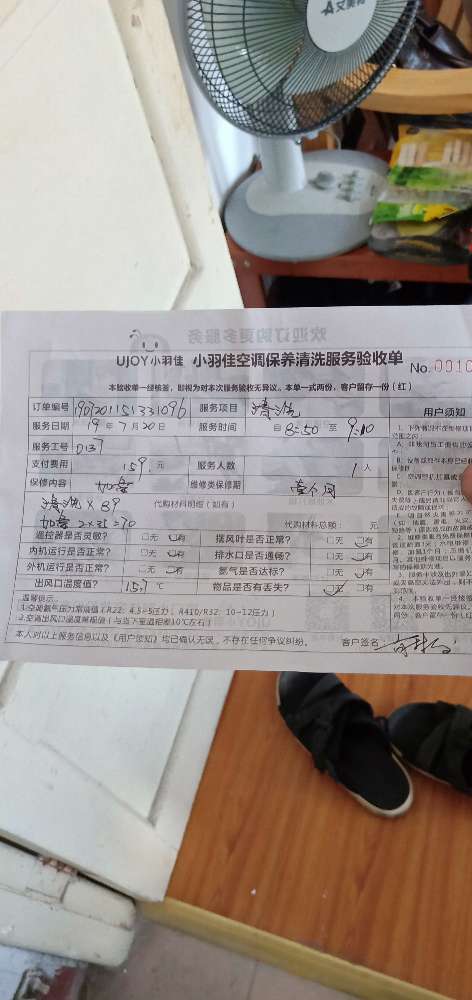 艾美特
UJOY小羽佳 小羽佳空调保养清洗服务验收单
No. 0010
本验收单一经核签,即视为对本次服务验收无异议。本单一式两份,客户留存一份(红)
用户须知
订单编号 190720151331096 服务项目 清洗
服务日期 19年7月20日 服务时间 自8:50至9:10
服务工号 D137
支付费用 159.元 服务人数 1人
保修内容 加氟 维修类保修期 壹个月
清洗×89 代购材料明细(如有)
加氟2×35=70 代购材料总额: 元
遥控器是否灵敏? 无 有 摆风叶是否正常? 无 有
内机运行是否正常? 无 有 排水口是否通畅? 无 有
外机运行是否正常? 无 有 氟气是否达标? 无 有
出风口温度值? 15.7 ℃ 物品是否有丢失? 无 有
温馨提示:
1.空调氟气压力常规值(R22: 4.5-5压力,R410/R32: 10-12压力)
2.空调出风口温度常规值(与当下室温相差10℃左右)
本人对以上服务信息以及《用户须知》均已确认无误,不存在任何争议纠纷。 客户签名: